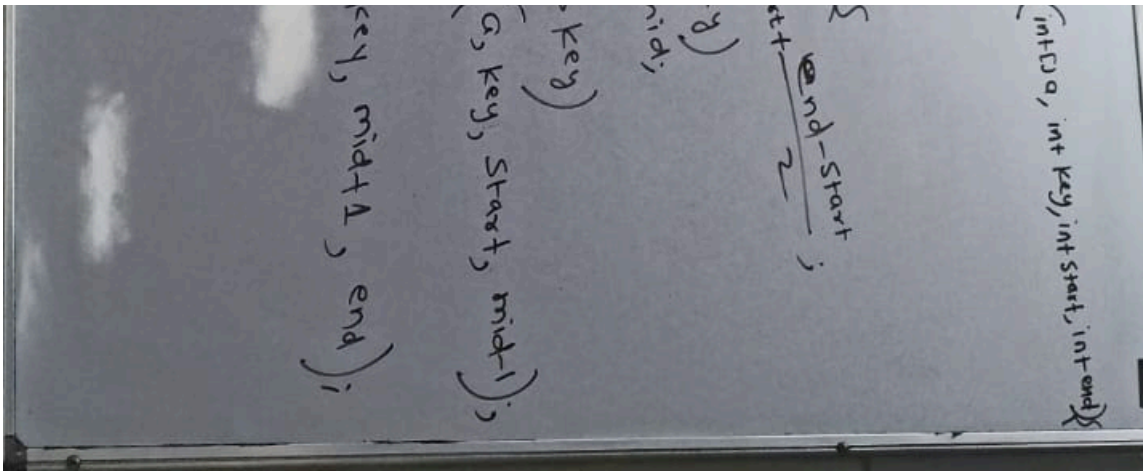 (int[] a, int key, int start, int end){
{
rt + end-start
2 ;
y)
mid;
> key)
(a, key, start, mid-1);
key, mid+1, end);